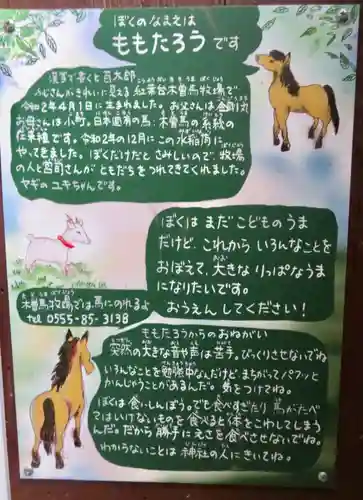 ぼくのなまえは
ももたろう です
漢字で書くと百太郎
ふじさんがきれいに見える紅葉台木曽馬牧場で
こうようだい きそ うま ぼくじょう
令和2年4月1日に生まれました。お父さんは金剛丸
お母さんは小町。日本固有の馬・木曽馬の系統の
在来種です。令和2年の12月にこの
やってきました。ぼくだけだとさみしいので、牧場
の人と宮司さんがともだちをつれてきてくれました。
ヤギのユキちゃんです。
ぼくは まだこどものうま
だけど、これから いろんなことを
おぼえて、大きな りっぱなうま
になりたいです。
おうえんしてください!
木曽馬牧場では馬にのれるよ
tel 0555-85-3138
ももたろうからのおねがい
突然の大きな音や声は苦手。びっくりさせないでね
いろんなことを勉強中なんだけど、まちがってパクッと
かんじゃうことがあるんだ。気をつけてね。
ぼくは食いしんぼう。でも食べすぎたり馬がたべ
てはいけないものを食べると体をこわしてしまう
んだ。だから勝手にえさを食べさせないでね。
わからないことは神社の人にきいてね。